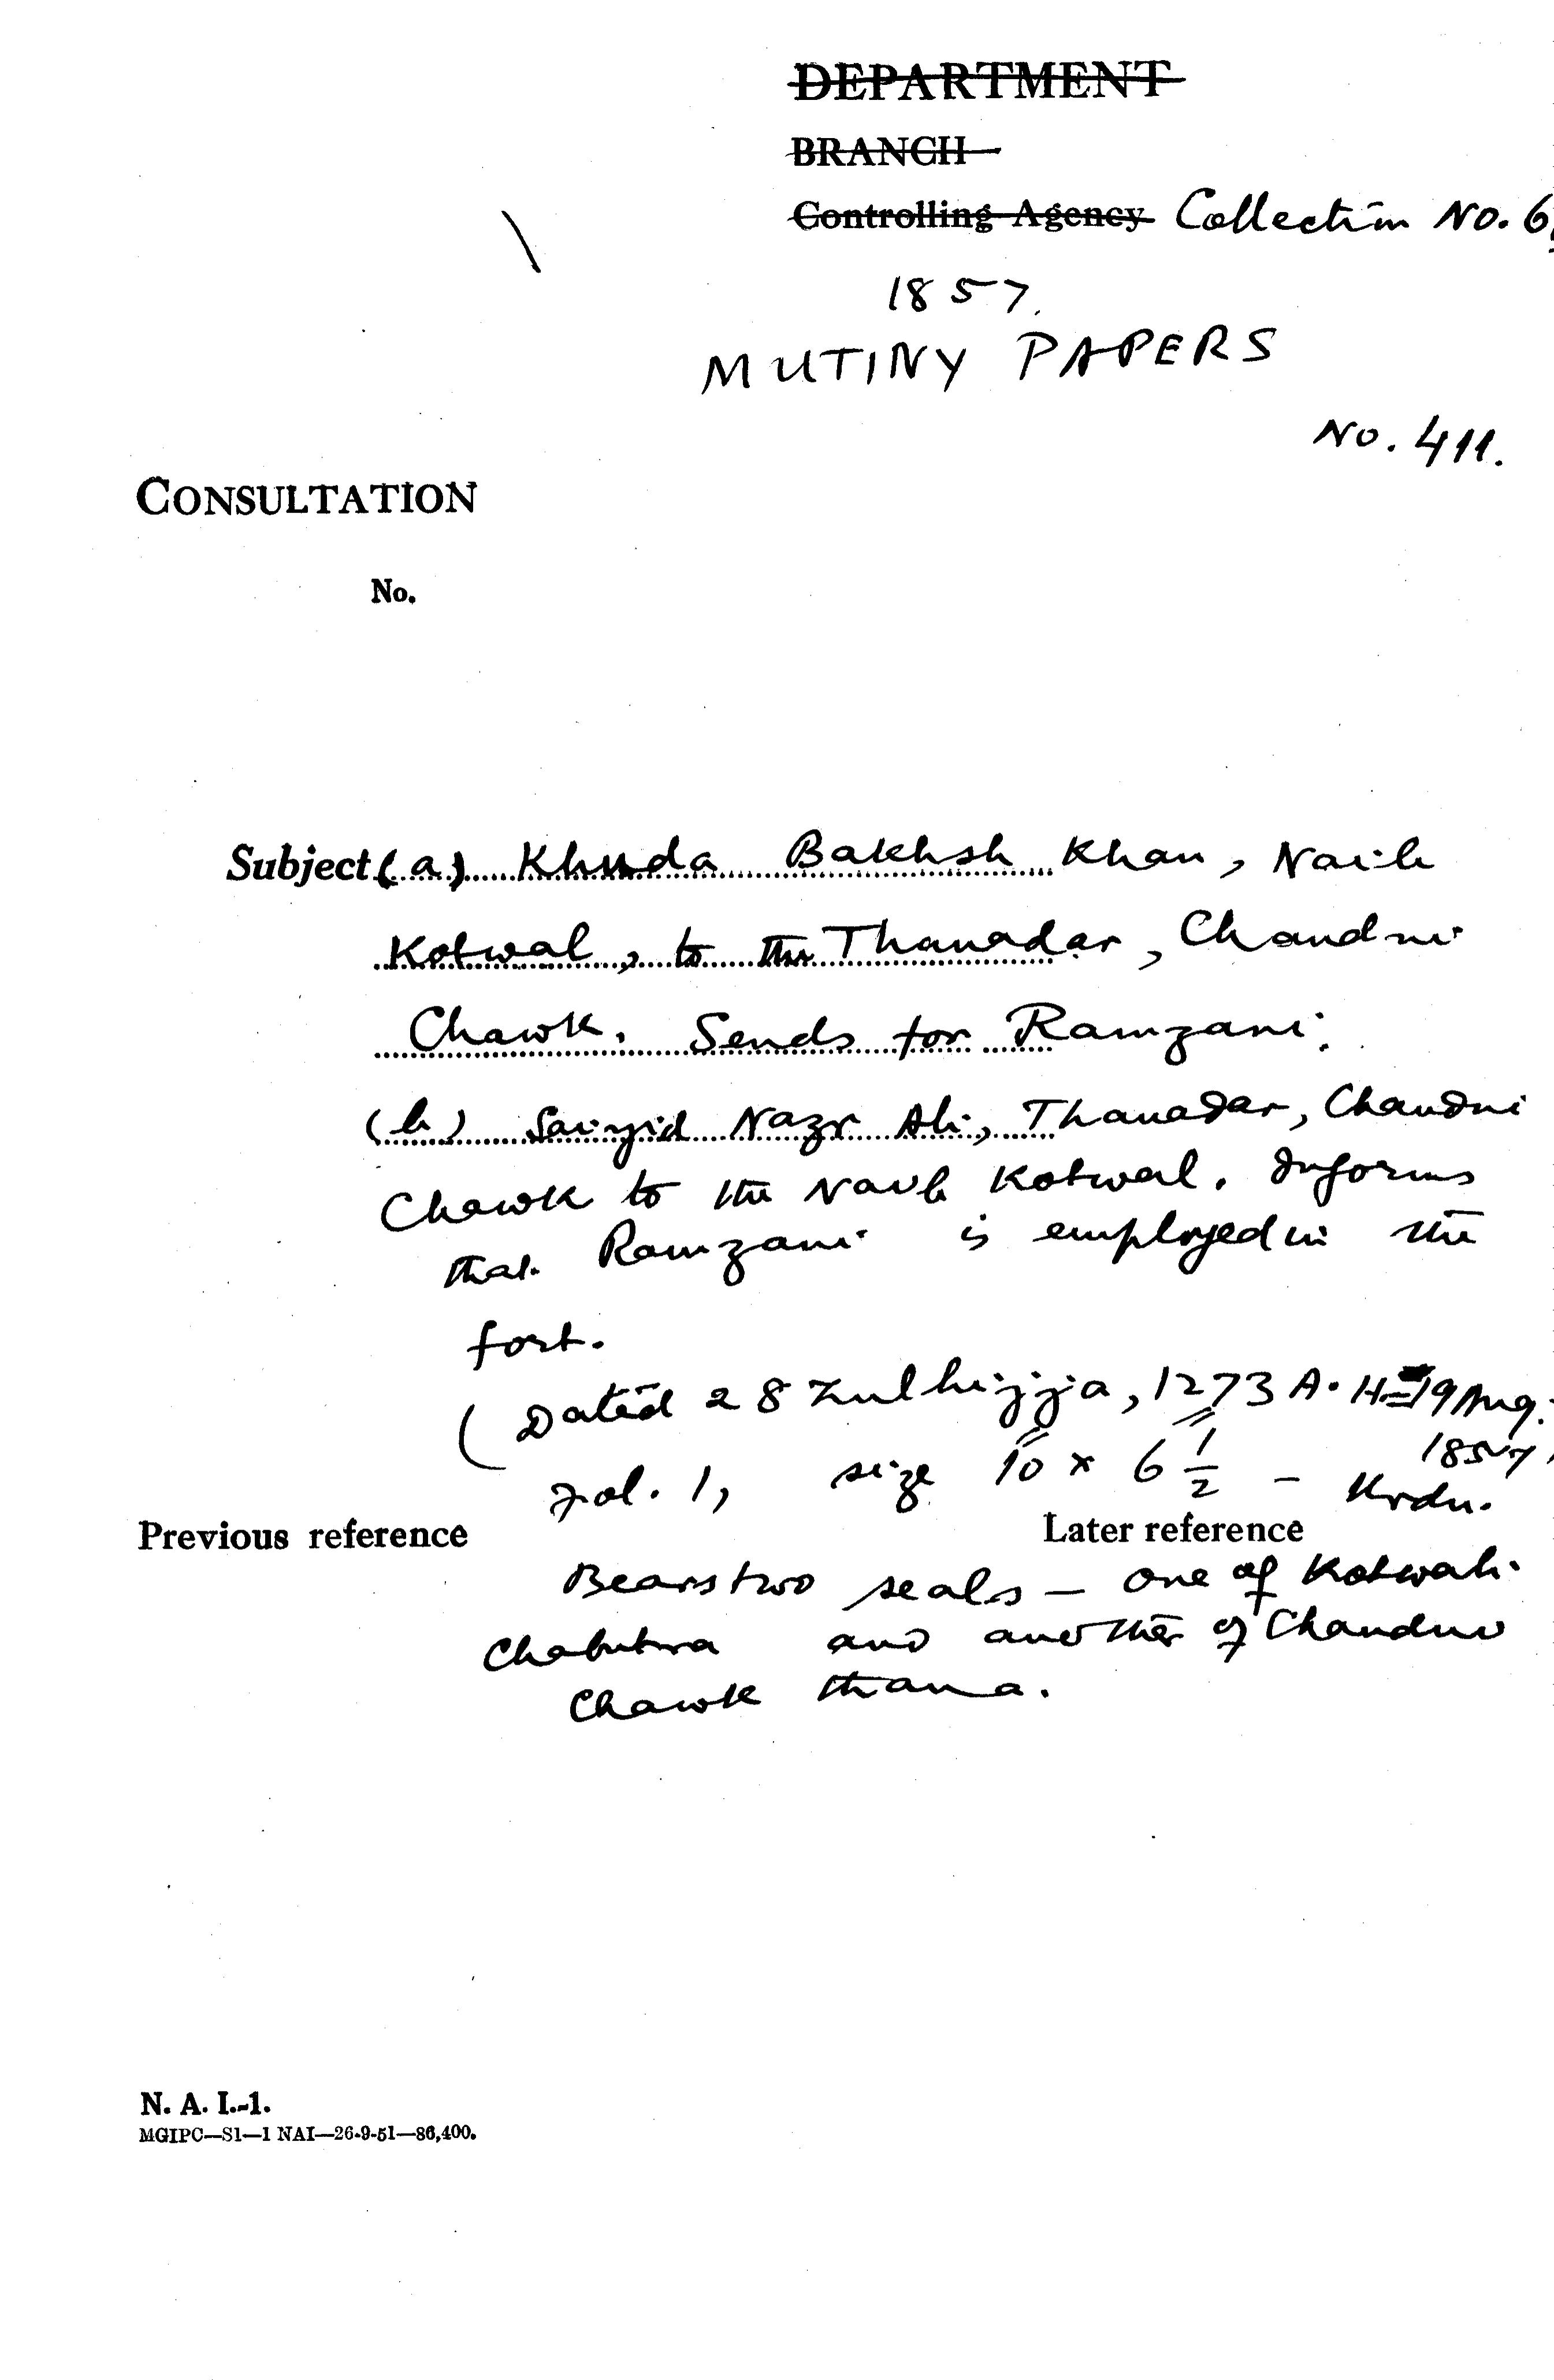 DEPARTMENT
BRANCH
Controlling Agency Collection No. 6,
1857.
MUTINY PAPERS
No. 411.
CONSULTATION
No.
Subject (a) Khuda Bakhsh Khan, Naib
Kotwal, to the Thanadar, Chandni
Chawk. Sends for Ramzani.
(b) Saiyid Nazr Ali, Thanadar, Chandni
Chawk to the Naib Kotwal. Informs
that Ramzani is employed in the
fort.
(Dated 28 Zulhijja, 1273 A. H=19 Aug.
1857,
Fol. 1, size 10 x 6 1/2 – Urdu.
Previous reference Later reference
Bears two seals – one of Kotwali
Chabutra and another of Chandni
Chawk thana.
N. A. I.-1.
MGIPC—S1—1 NAI—26-9-51—86,400.